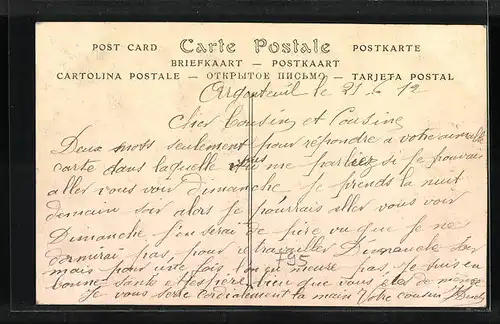 POST CARD Carte Postale POSTKARTE
BRIEFKAART — POSTKAART
CARTOLINA POSTALE — ОТКРЫТОЕ ПИСЬМО — TARJETA POSTAL
Argenteuil le 21 - 6 12
Cher Cousin et Cousine
Deux mots seulement pour répondre à votre aimable
carte dans laquelle vous me parliez si je pouvais
aller vous voir Dimanche je prends la nuit
demain soir alors je pourrais aller vous voir
Dimanche j'en serai de vu que je ne
dormirai pas pour retravailler Dimanche soir
mais pour une fois l'on en meure pas, je suis en
bonne santé et j'espère bien que vous êtes de même
Je vous serre cordialement la main Votre cousin
195